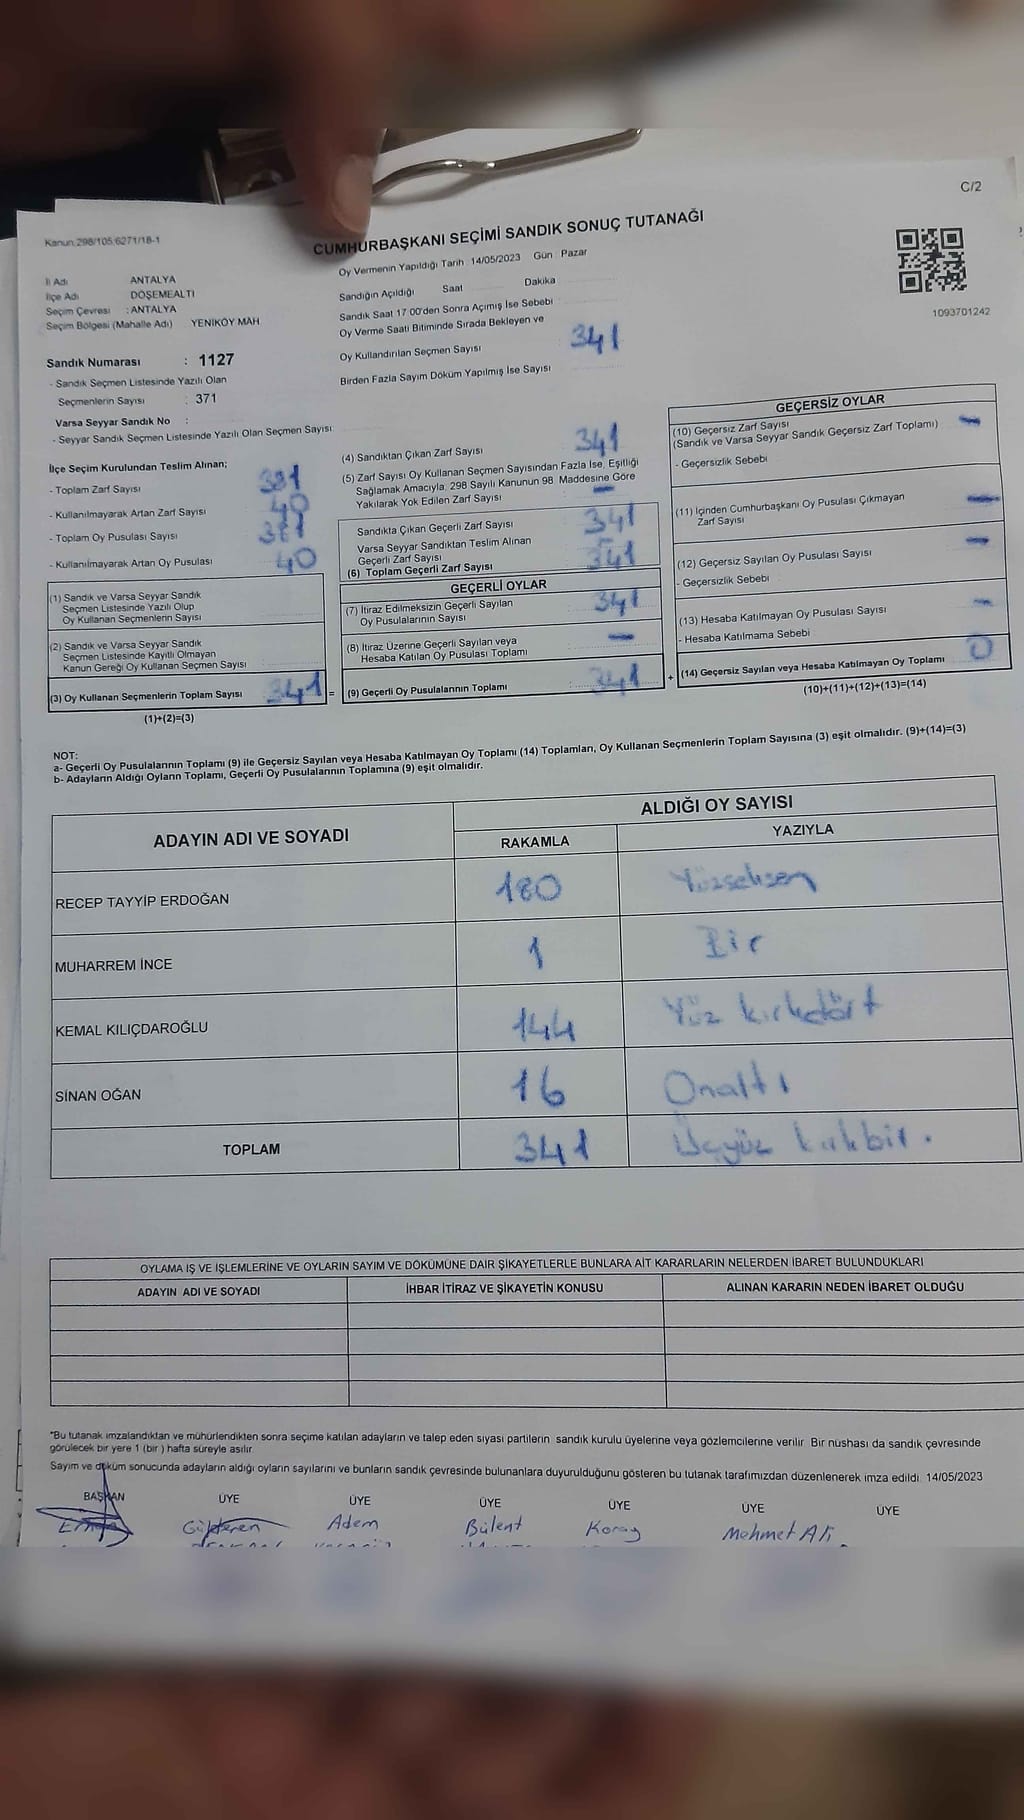 C/2
Kanun:298/105,6271/18-1
CUMHURBAŞKANI SEÇİMİ SANDIK SONUÇ TUTANAĞI
İl Adı ANTALYA
İlçe Adı DÖŞEMEALTI
Seçim Çevresi : ANTALYA
Seçim Bölgesi (Mahalle Adı) YENİKÖY MAH
Oy Vermenin Yapıldığı Tarih 14/05/2023 Gün Pazar
Sandığın Açıldığı Saat Dakika
Sandık Saat 17:00'den Sonra Açımış İse Sebebi
Oy Verme Saati Bitiminde Sırada Bekleyen ve
Oy Kullandırılan Seçmen Sayısı 341
Birden Fazla Sayım Döküm Yapılmış İse Sayısı
1093701242
Sandık Numarası : 1127
- Sandık Seçmen Listesinde Yazılı Olan
Seçmenlerin Sayısı : 371
Varsa Seyyar Sandık No :
- Seyyar Sandık Seçmen Listesinde Yazılı Olan Seçmen Sayısı:
İlçe Seçim Kurulundan Teslim Alınan;
- Toplam Zarf Sayısı 381
- Kullanılmayarak Artan Zarf Sayısı 40
- Toplam Oy Pusulası Sayısı 381
- Kullanılmayarak Artan Oy Pusulası 40
(1) Sandık ve Varsa Seyyar Sandık
Seçmen Listesinde Yazılı Olup
Oy Kullanan Seçmenlerin Sayısı
(2) Sandık ve Varsa Seyyar Sandık
Seçmen Listesinde Kayıtlı Olmayan
Kanun Gereği Oy Kullanan Seçmen Sayısı
(3) Oy Kullanan Seçmenlerin Toplam Sayısı 341 =
(1)+(2)=(3)
(4) Sandıktan Çıkan Zarf Sayısı 341
(5) Zarf Sayısı Oy Kullanan Seçmen Sayısından Fazla İse, Eşitliği
Sağlamak Amacıyla, 298 Sayılı Kanunun 98. Maddesine Göre
Yakılarak Yok Edilen Zarf Sayısı —
Sandıkta Çıkan Geçerli Zarf Sayısı 341
Varsa Seyyar Sandıktan Teslim Alınan
Geçerli Zarf Sayısı —
(6) Toplam Geçerli Zarf Sayısı 341
GEÇERLİ OYLAR
(7) İtiraz Edilmeksizin Geçerli Sayılan
Oy Pusulalarının Sayısı 341
(8) İtiraz Üzerine Geçerli Sayılan veya
Hesaba Katılan Oy Pusulası Toplamı —
(9) Geçerli Oy Pusulalarının Toplamı 341 +
GEÇERSİZ OYLAR
(10) Geçersiz Zarf Sayısı —
(Sandık ve Varsa Seyyar Sandık Geçersiz Zarf Toplamı)
- Geçersizlik Sebebi
(11) İçinden Cumhurbaşkanı Oy Pusulası Çıkmayan
Zarf Sayısı —
(12) Geçersiz Sayılan Oy Pusulası Sayısı —
- Geçersizlik Sebebi
(13) Hesaba Katılmayan Oy Pusulası Sayısı —
- Hesaba Katılmama Sebebi
(14) Geçersiz Sayılan veya Hesaba Katılmayan Oy Toplamı 0
(10)+(11)+(12)+(13)=(14)
NOT:
a- Geçerli Oy Pusulalarının Toplamı (9) ile Geçersiz Sayılan veya Hesaba Katılmayan Oy Toplamı (14) Toplamları, Oy Kullanan Seçmenlerin Toplam Sayısına (3) eşit olmalıdır. (9)+(14)=(3)
b- Adayların Aldığı Oyların Toplamı, Geçerli Oy Pusulalarının Toplamına (9) eşit olmalıdır.
ADAYIN ADI VE SOYADI ALDIĞI OY SAYISI
RAKAMLA YAZIYLA
RECEP TAYYİP ERDOĞAN 180 Yüzseksen
MUHARREM İNCE 1 Bir
KEMAL KILIÇDAROĞLU 144 Yüz kırkdört
SİNAN OĞAN 16 Onaltı
TOPLAM 341 Üçyüz kırkbir.
OYLAMA İŞ VE İŞLEMLERİNE VE OYLARIN SAYIM VE DÖKÜMÜNE DAİR ŞİKAYETLERLE BUNLARA AİT KARARLARIN NELERDEN İBARET BULUNDUKLARI
ADAYIN ADI VE SOYADI İHBAR İTİRAZ VE ŞİKAYETİN KONUSU ALINAN KARARIN NEDEN İBARET OLDUĞU
*Bu tutanak imzalandıktan ve mühürlendikten sonra seçime katılan adayların ve talep eden siyasi partilerin sandık kurulu üyelerine veya gözlemcilerine verilir. Bir nüshası da sandık çevresinde
görülecek bir yere 1 (bir ) hafta süreyle asılır
Sayım ve döküm sonucunda adayların aldığı oyların sayılarını ve bunların sandık çevresinde bulunanlara duyurulduğunu gösteren bu tutanak tarafımızdan düzenlenerek imza edildi. 14/05/2023
BAŞKAN ÜYE ÜYE ÜYE ÜYE ÜYE ÜYE
Adem Bülent Koray Mehmet Ali